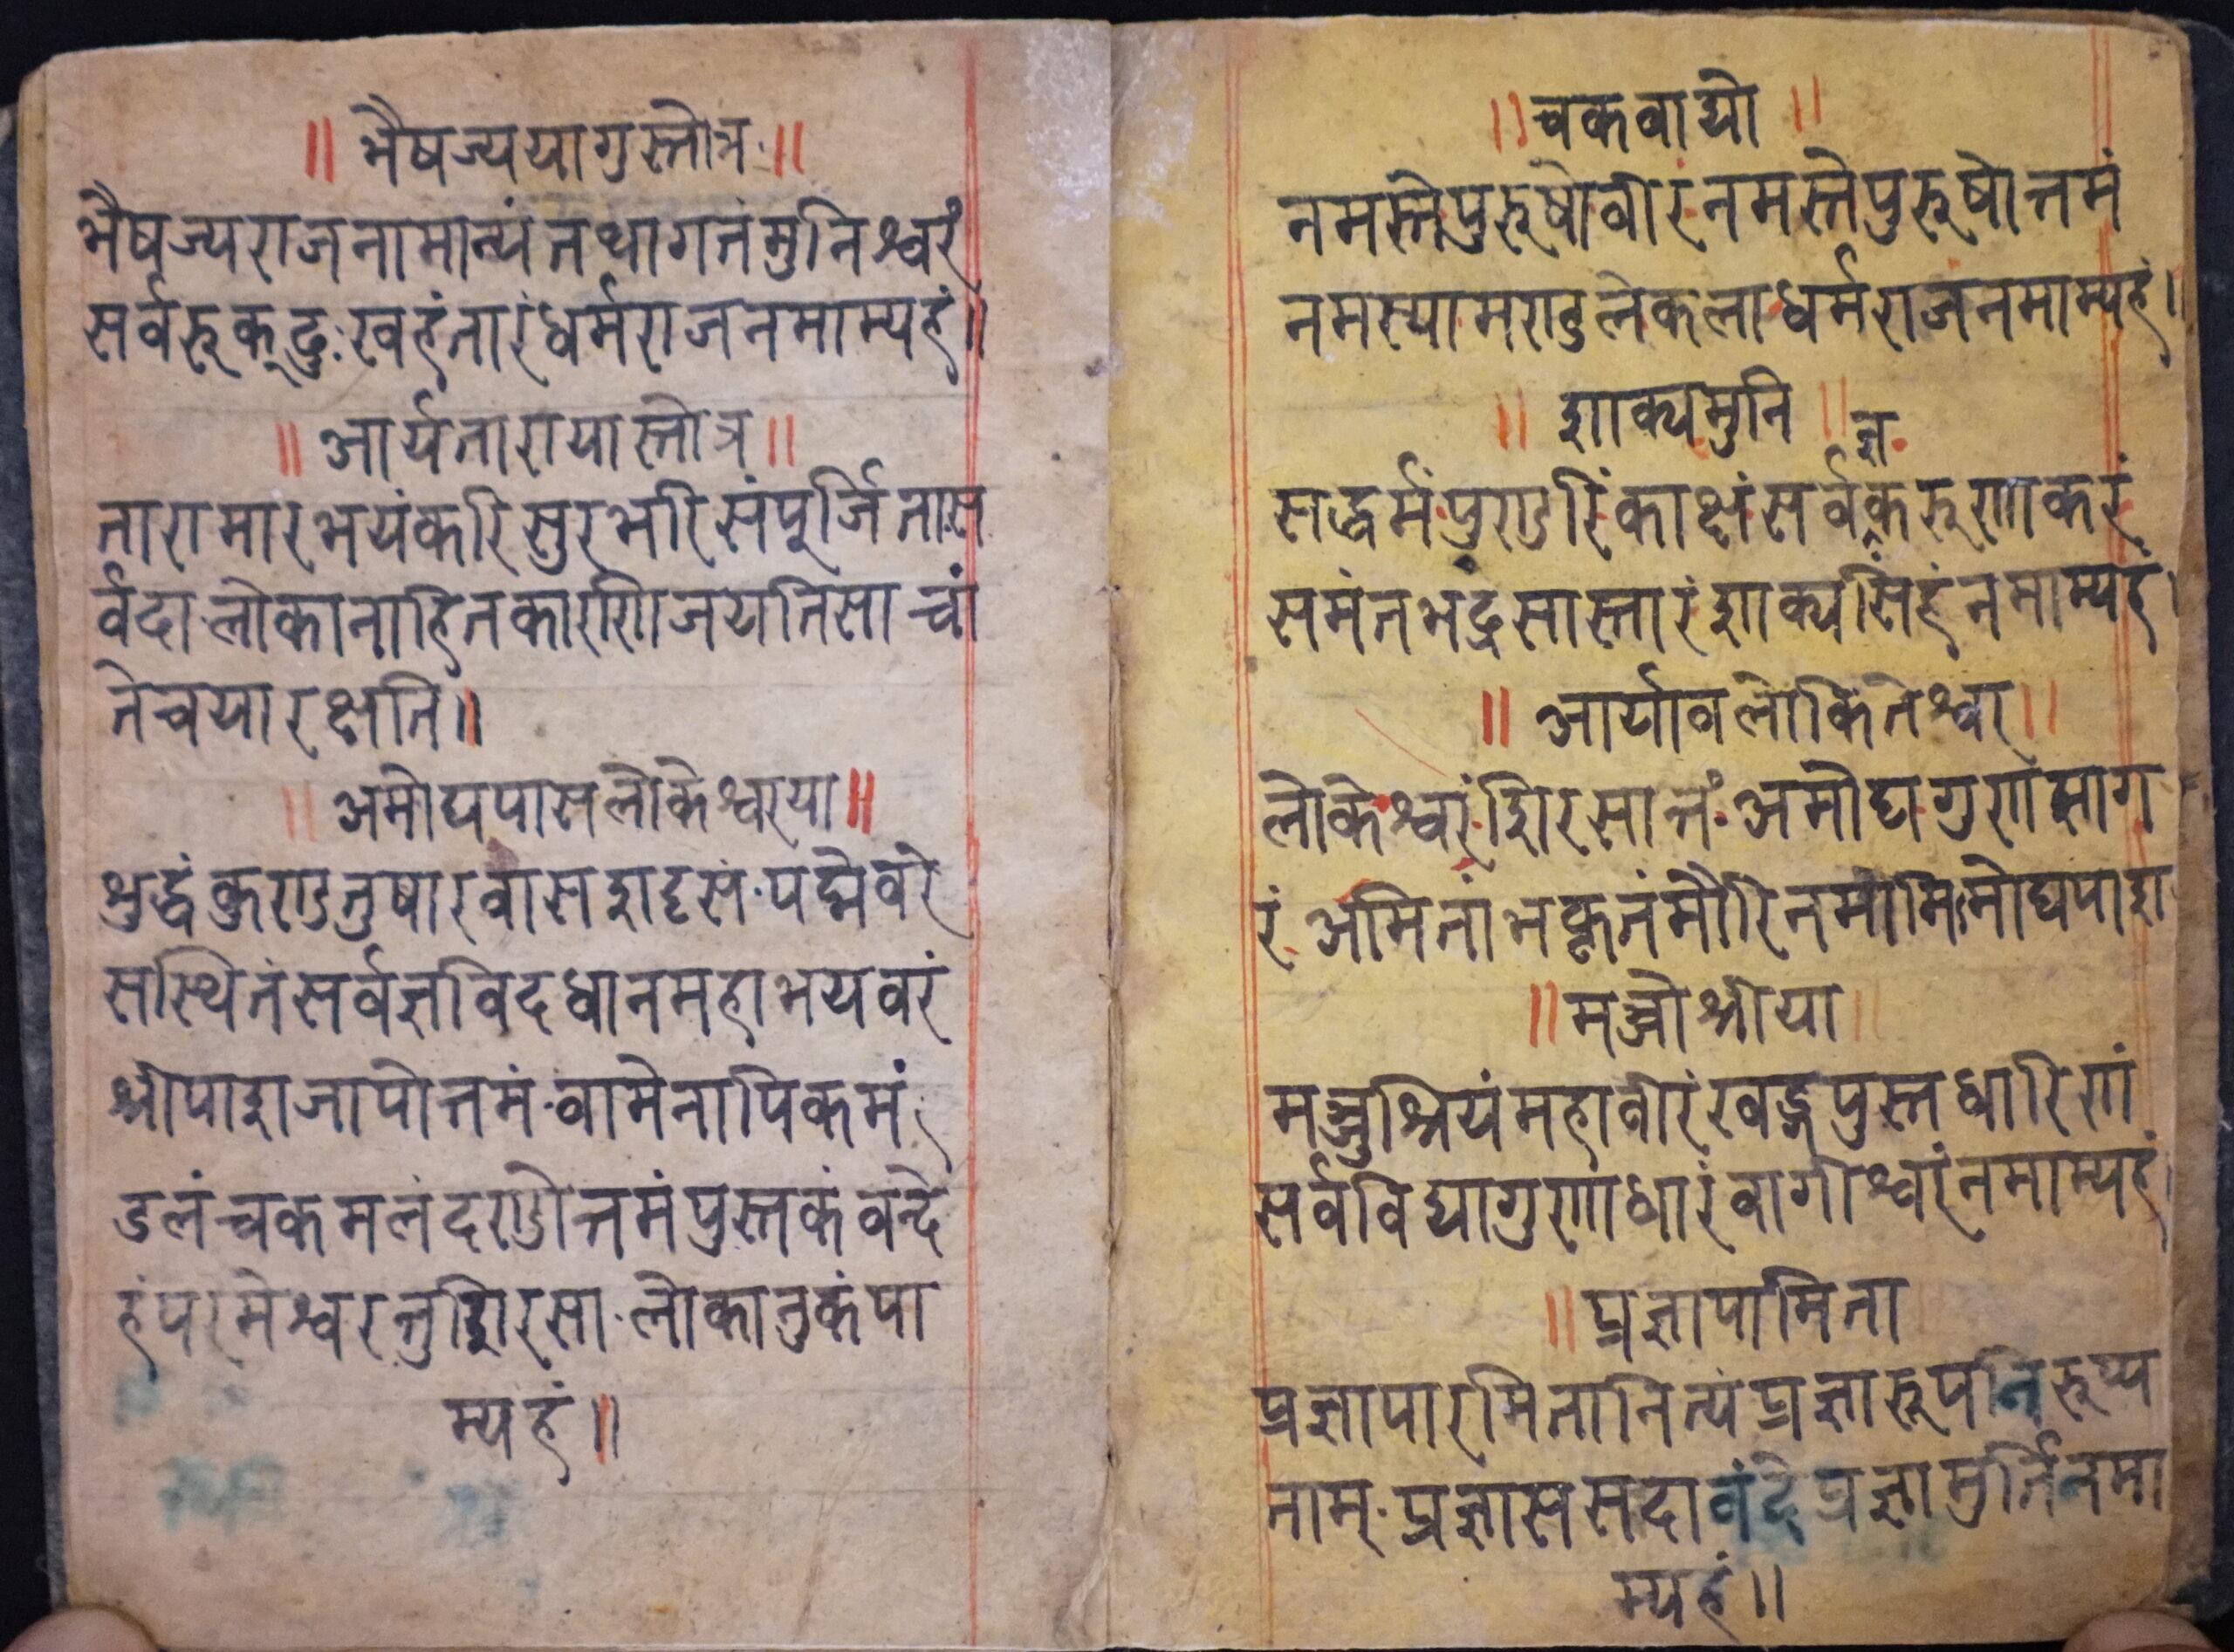 ॥ भैषज्ययागुस्तोत्र ॥
भैषज्यराजनामान्यंतथागतंमुनिश्वरं
सर्वरुक्दुःखहंतारंधर्मराजनमाम्यहं॥
॥ आर्यतारायास्तोत्र ॥
तारामारभयंकरिसुरभरिसंपूर्जितास
र्वदा लोकानाहितकारणिजयतिसा चां
तेचयारक्षति॥
॥ अमोघपासलोकेश्वरया॥
शुद्धंकुण्डतुषारवासशदृसं·पद्मेवरे
सस्थितंसर्वज्ञविदधानमहाभयवरं
श्रीपाशजापोत्तमं·वामेनापिकमं
डलंचकमलंदण्डोत्तमंपुस्तकंवन्दे
हंपरमेश्वरत्तुशिरसा·लोकानुकंपा
म्यहं॥
॥ चकवाद्यो ॥
नमस्तेपुरुषोवीरंनमस्तेपुरुषोत्तमं
नमस्यामराडलेकला धर्मराजनमाम्यहं॥
॥ शाक्यमुनि ॥
ज्ञ
सद्धर्मंपुण्डरिंकाक्षंसर्वकरुणाकरं
समंतभद्रंसास्तारंशाक्यसिंहंनमाम्यहं।
॥ आर्यावलोकितेश्वर॥
लोकेश्वरंशिरसात्तं·अमोघगुणंसाग
रं अमितांभकृतंमौरिनमामिमोघपाश
॥मञ्जोश्रीया॥
मञ्जुश्रियंमहावीरंखड्गपुस्तधारिणं
सर्वविद्यागुणाधारंवागीश्वरंनमाम्यहं।
॥प्रज्ञापामिता
प्रज्ञापारमितानित्यंप्रज्ञारुपनिरुप्य
नाम्·प्रज्ञाससदावंदेप्रज्ञामुर्तिनमा
म्यहं॥